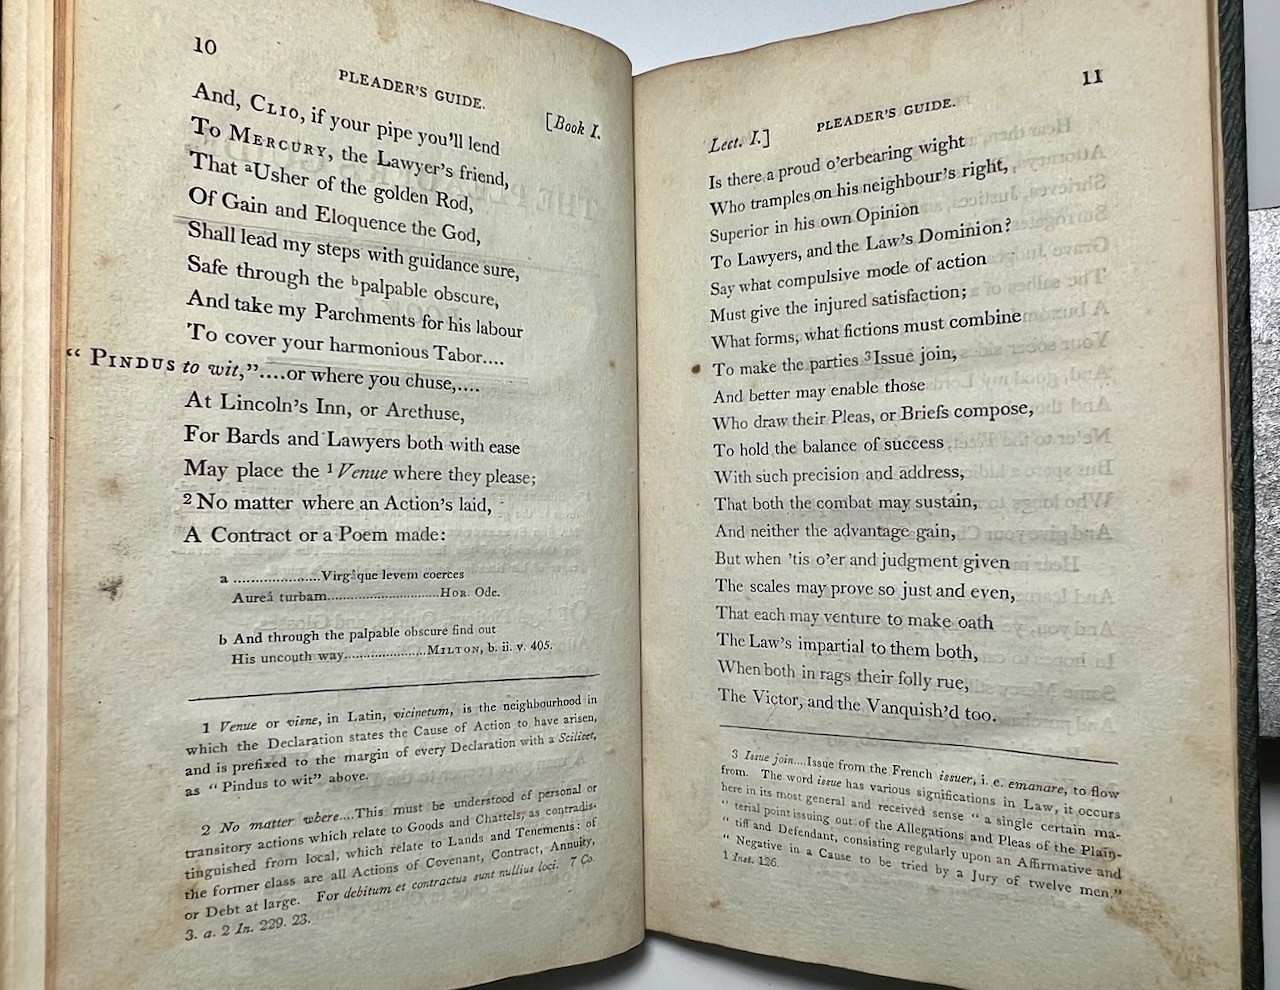 10
PLEADER'S GUIDE.
[Book I.
And, CLIO, if your pipe you'll lend
To MERCURY, the Lawyer's friend,
That ªUsher of the golden Rod,
Of Gain and Eloquence the God,
Shall lead my steps with guidance sure,
Safe through the ᵇpalpable obscure,
And take my Parchments for his labour
To cover your harmonious Tabor....
“ PINDUS to wit,”....or where you chuse,....
At Lincoln's Inn, or Arethuse,
For Bards and Lawyers both with ease
May place the ¹ Venue where they please;
² No matter where an Action's laid,
A Contract or a Poem made:
a .....................Virgâque levem coerces
Aureâ turbam...........................HOR. Ode.
b And through the palpable obscure find out
His uncouth way.....................MILTON, b. ii. v. 405.
1 Venue or visne, in Latin, vicinetum, is the neighbourhood in
which the Declaration states the Cause of Action to have arisen,
and is prefixed to the margin of every Declaration with a Scilicet,
as “ Pindus to wit” above.
2 No matter where....This must be understood of personal or
transitory actions which relate to Goods and Chattels, as contradis-
tinguished from local, which relate to Lands and Tenements: of
the former class are all Actions of Covenant, Contract, Annuity,
or Debt at large. For debitum et contractus sunt nullius loci. 7 Co.
3. a. 2 In. 229. 23.
11
PLEADER'S GUIDE.
Lect. I.]
Is there a proud o'erbearing wight
Who tramples on his neighbour's right,
Superior in his own Opinion
To Lawyers, and the Law's Dominion?
Say what compulsive mode of action
Must give the injured satisfaction;
What forms, what fictions must combine
To make the parties ³Issue join,
And better may enable those
Who draw their Pleas, or Briefs compose,
To hold the balance of success
With such precision and address,
That both the combat may sustain,
And neither the advantage gain,
But when 'tis o'er and judgment given
The scales may prove so just and even,
That each may venture to make oath
The Law's impartial to them both,
When both in rags their folly rue,
The Victor, and the Vanquish'd too.
3 Issue join....Issue from the French issuer, i. e. emanare, to flow
from. The word issue has various significations in Law, it occurs
here in its most general and received sense “ a single certain ma-
“ terial point issuing out of the Allegations and Pleas of the Plain-
“ tiff and Defendant, consisting regularly upon an Affirmative and
“ Negative in a Cause to be tried by a Jury of twelve men.”
1 Inst. 126.